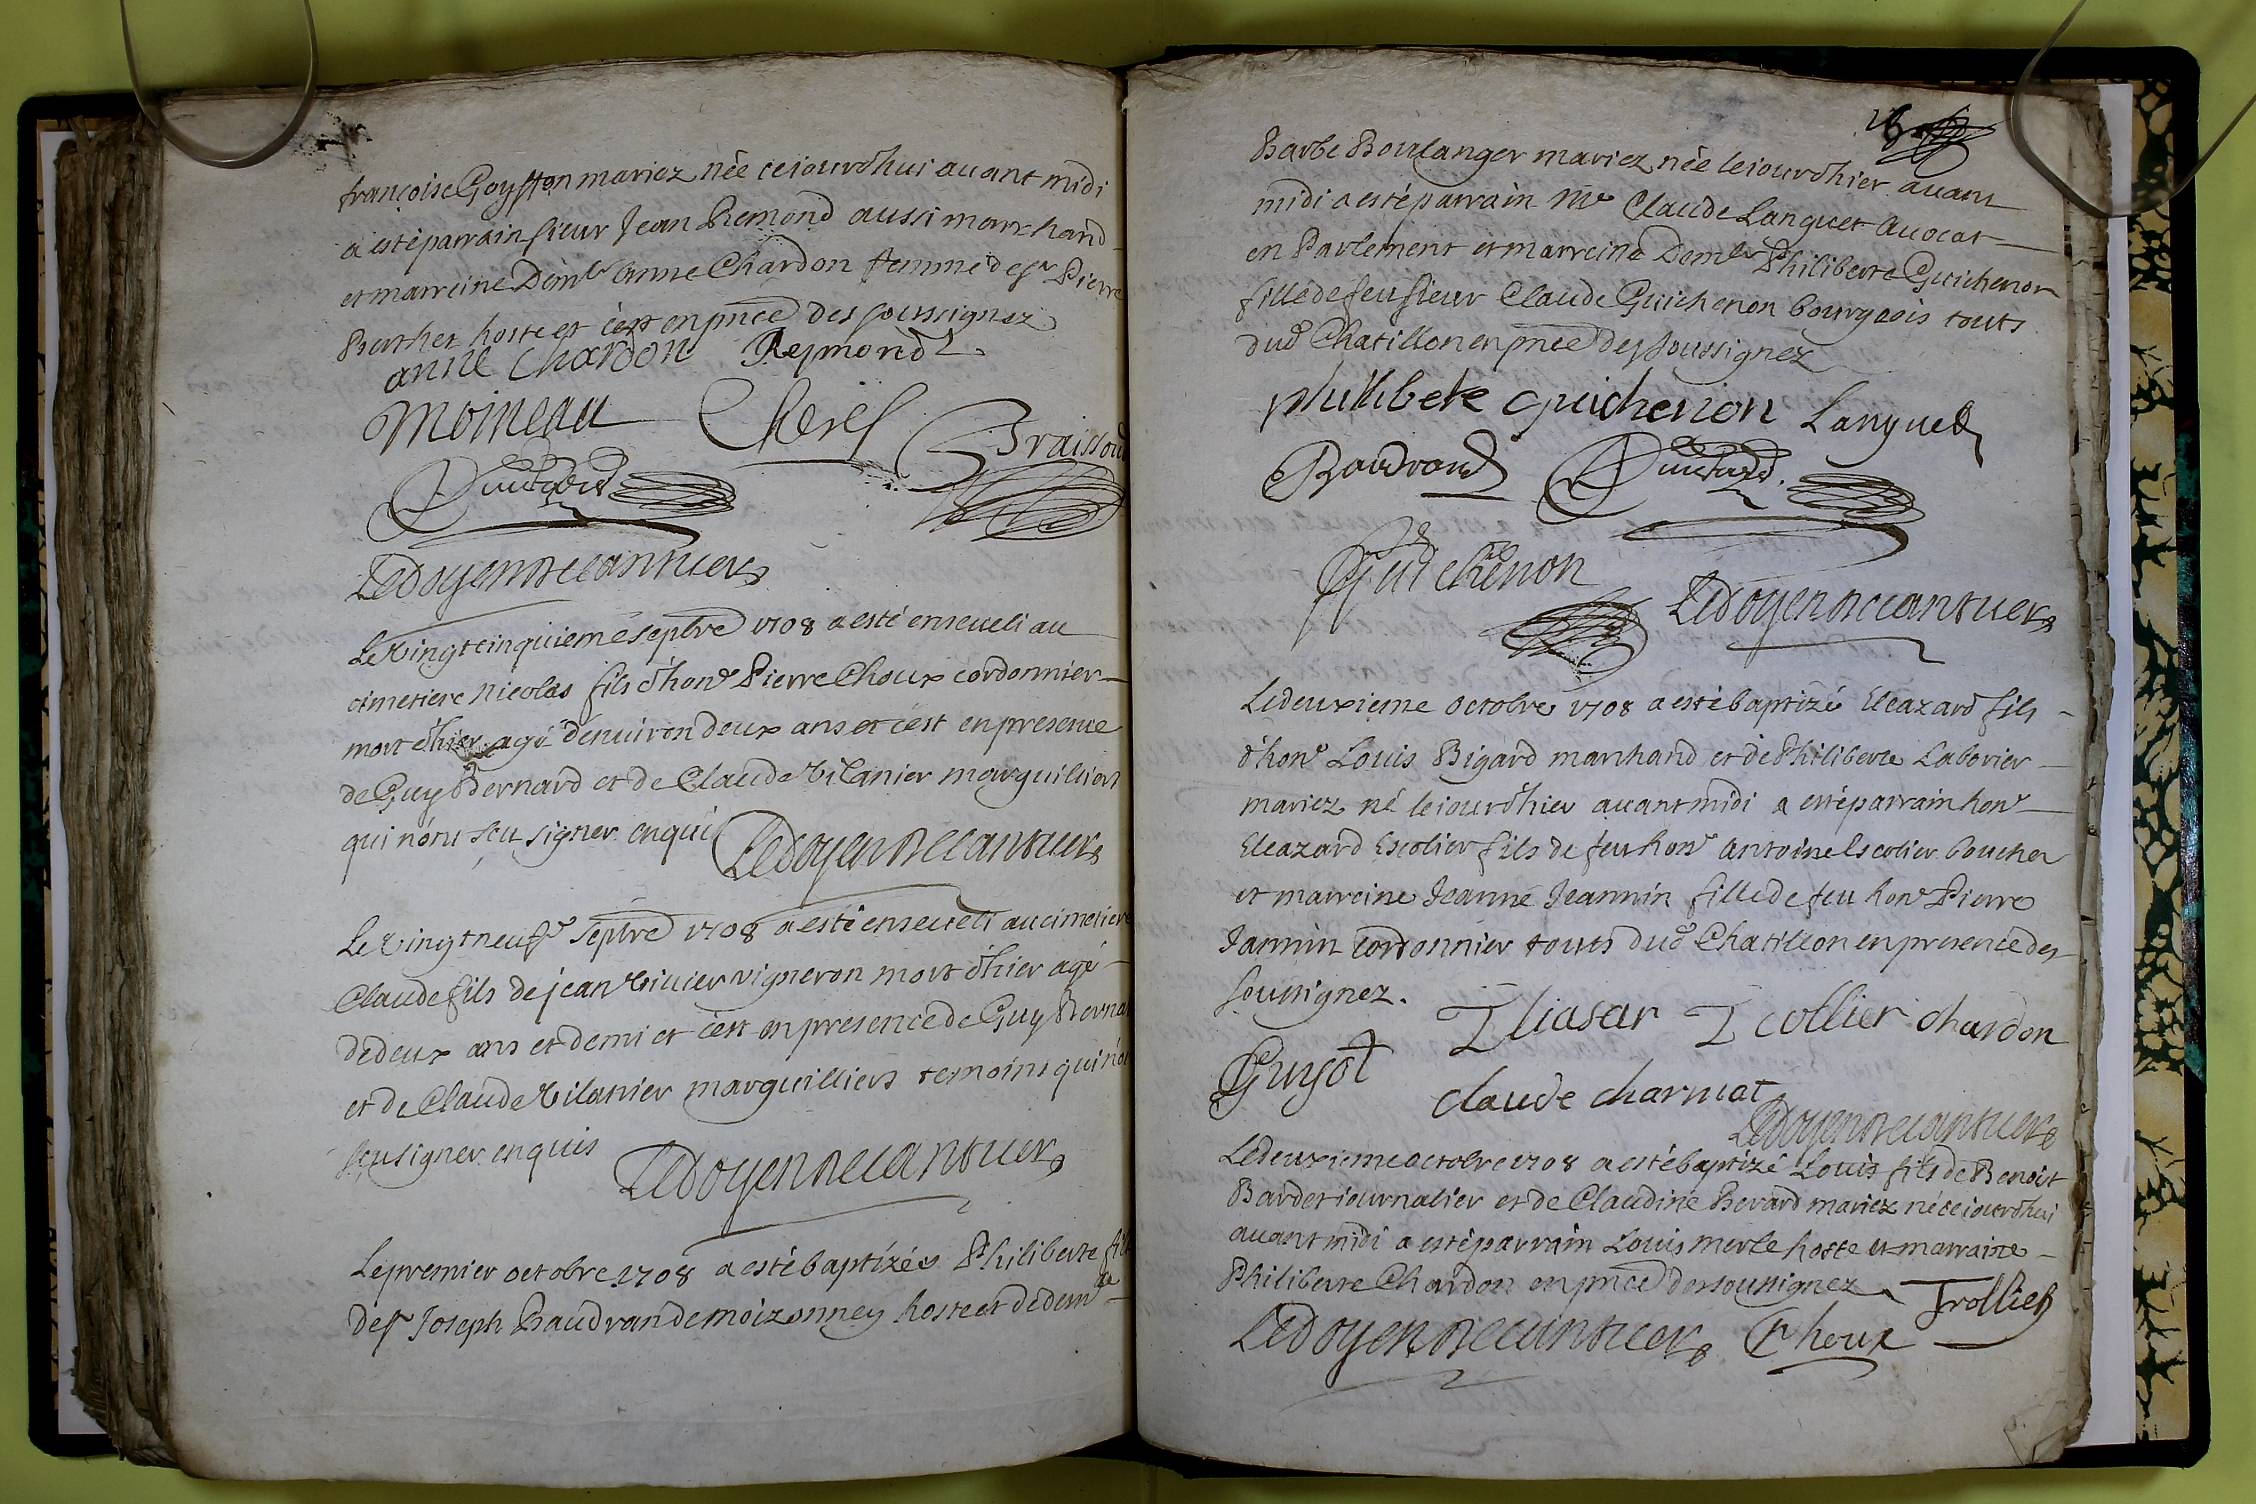 françoise Goyffon mariez née ceiourdhui avant midi
a esté parrain sieur Jean Remond aussi marchand
et marreine Demle Anne Chardon femme de sr Pierre
Barthet hoste et c'est en pnce des soussignez
anne Chardon Reymond
Moineau Cherel Braissoud
Ledoyen
Le vingtcinquieme septbre 1708 a esté enseveli au
cimetiere Nicolas fils d'hone Pierre Choux cordonnier
mort d'hier agé d'environ deux ans et c'est en presence
de Guy Bernard et de Claude Vilanier marguilliers
qui n'ont sçu signer enquis Ledoyen
Le vingt neufe septbre 1708 a esté enseveli au cimetiere
Claude fils de jean Vivier vigneron mort d'hier agé
de deux ans et demi et c'est en presence de Guy Berna
et de Claude Vilanier marguilliers temoins qui n'o
sçu signer enquis Ledoyen
Le premier octobre 1708 a esté baptizée Philiberte fil
de sr Joseph Baudrand de moizonney hoste et de demle
Barbe Boulanger mariez née leiourdhier avant
midi a esté parrain Me Claude Languet Avocat
en Parlement et marreine Demle Philiberte Guichenon
fille de feu sieur Claude Guichenon bourgeois touts
dud Chatillon en pnce des soussignez
phillibete guichenon Languet
Baudrand
Guichenon Ledoyen
Le deuxieme octobre 1708 a esté baptizé Eleazard fils
d'hone Louis Bigard marchand et de Philiberte Laborier
mariez né leiourdhier avant midi a esté parrain hone
Eleazard Escolier fils de feu hone Antoine Escolier boucher
et marreine Jeanne Jeannin fille de feu hone Pierre
Jannin cordonnier touts dud Chatillon en presence des
soussignez. Eliasar Ecollier chardon
Guyot claude charmat
Ledoyen
Le deuxieme octobre 1708 a esté baptizé Louis fils de Benoit
Bardet iournalier et de Claudine Berard mariez né ceiourdhui
avant midi a esté parrain Louis merle hoste et marraine
Philiberte Chardon en pnce des soussignez Trollier
Ledoyen Choux